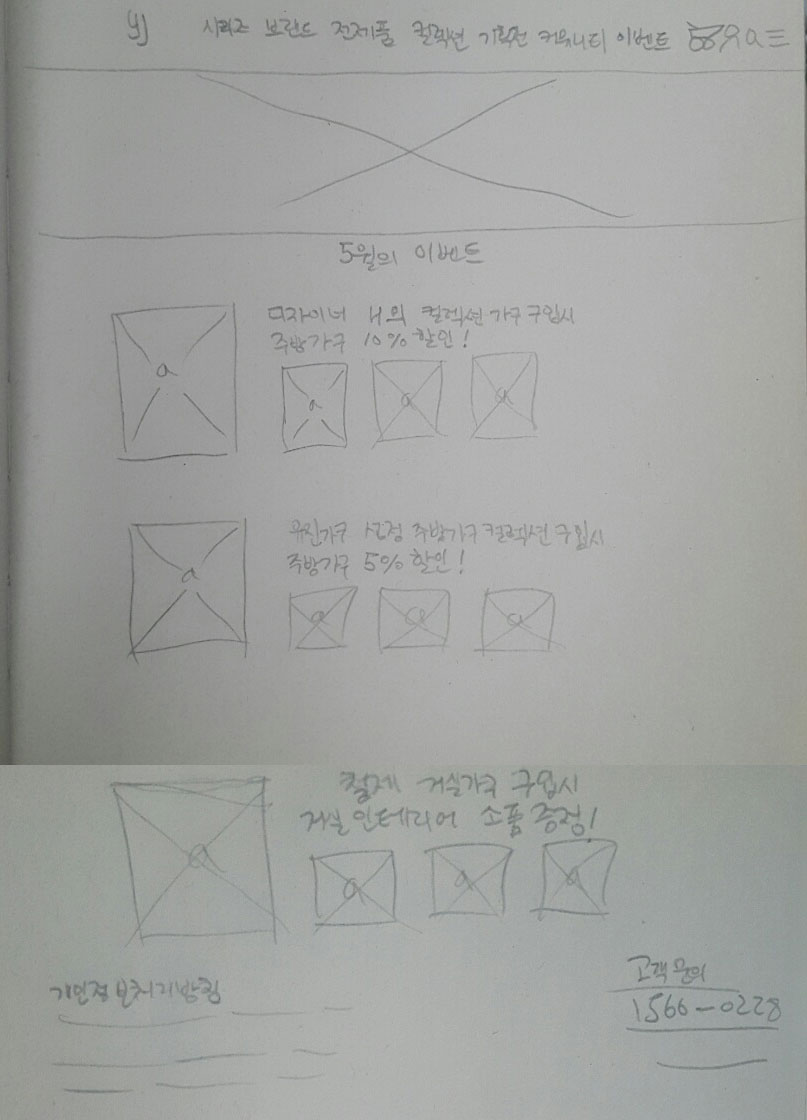 yj 시리즈 브랜드 전제품 컬렉션 기획전 커뮤니티 이벤트
5월의 이벤트
디자이너 H의 컬렉션 가구 구입시
주방가구 10% 할인!
a
a a a
유진가구 선정 주방가구 컬렉션 구입시
주방가구 5% 할인!
a
a a a
철제 거실가구 구입시
거실 인테리어 소품 증정!
a
a a a
개인정보처리방침
고객문의
1566-0228